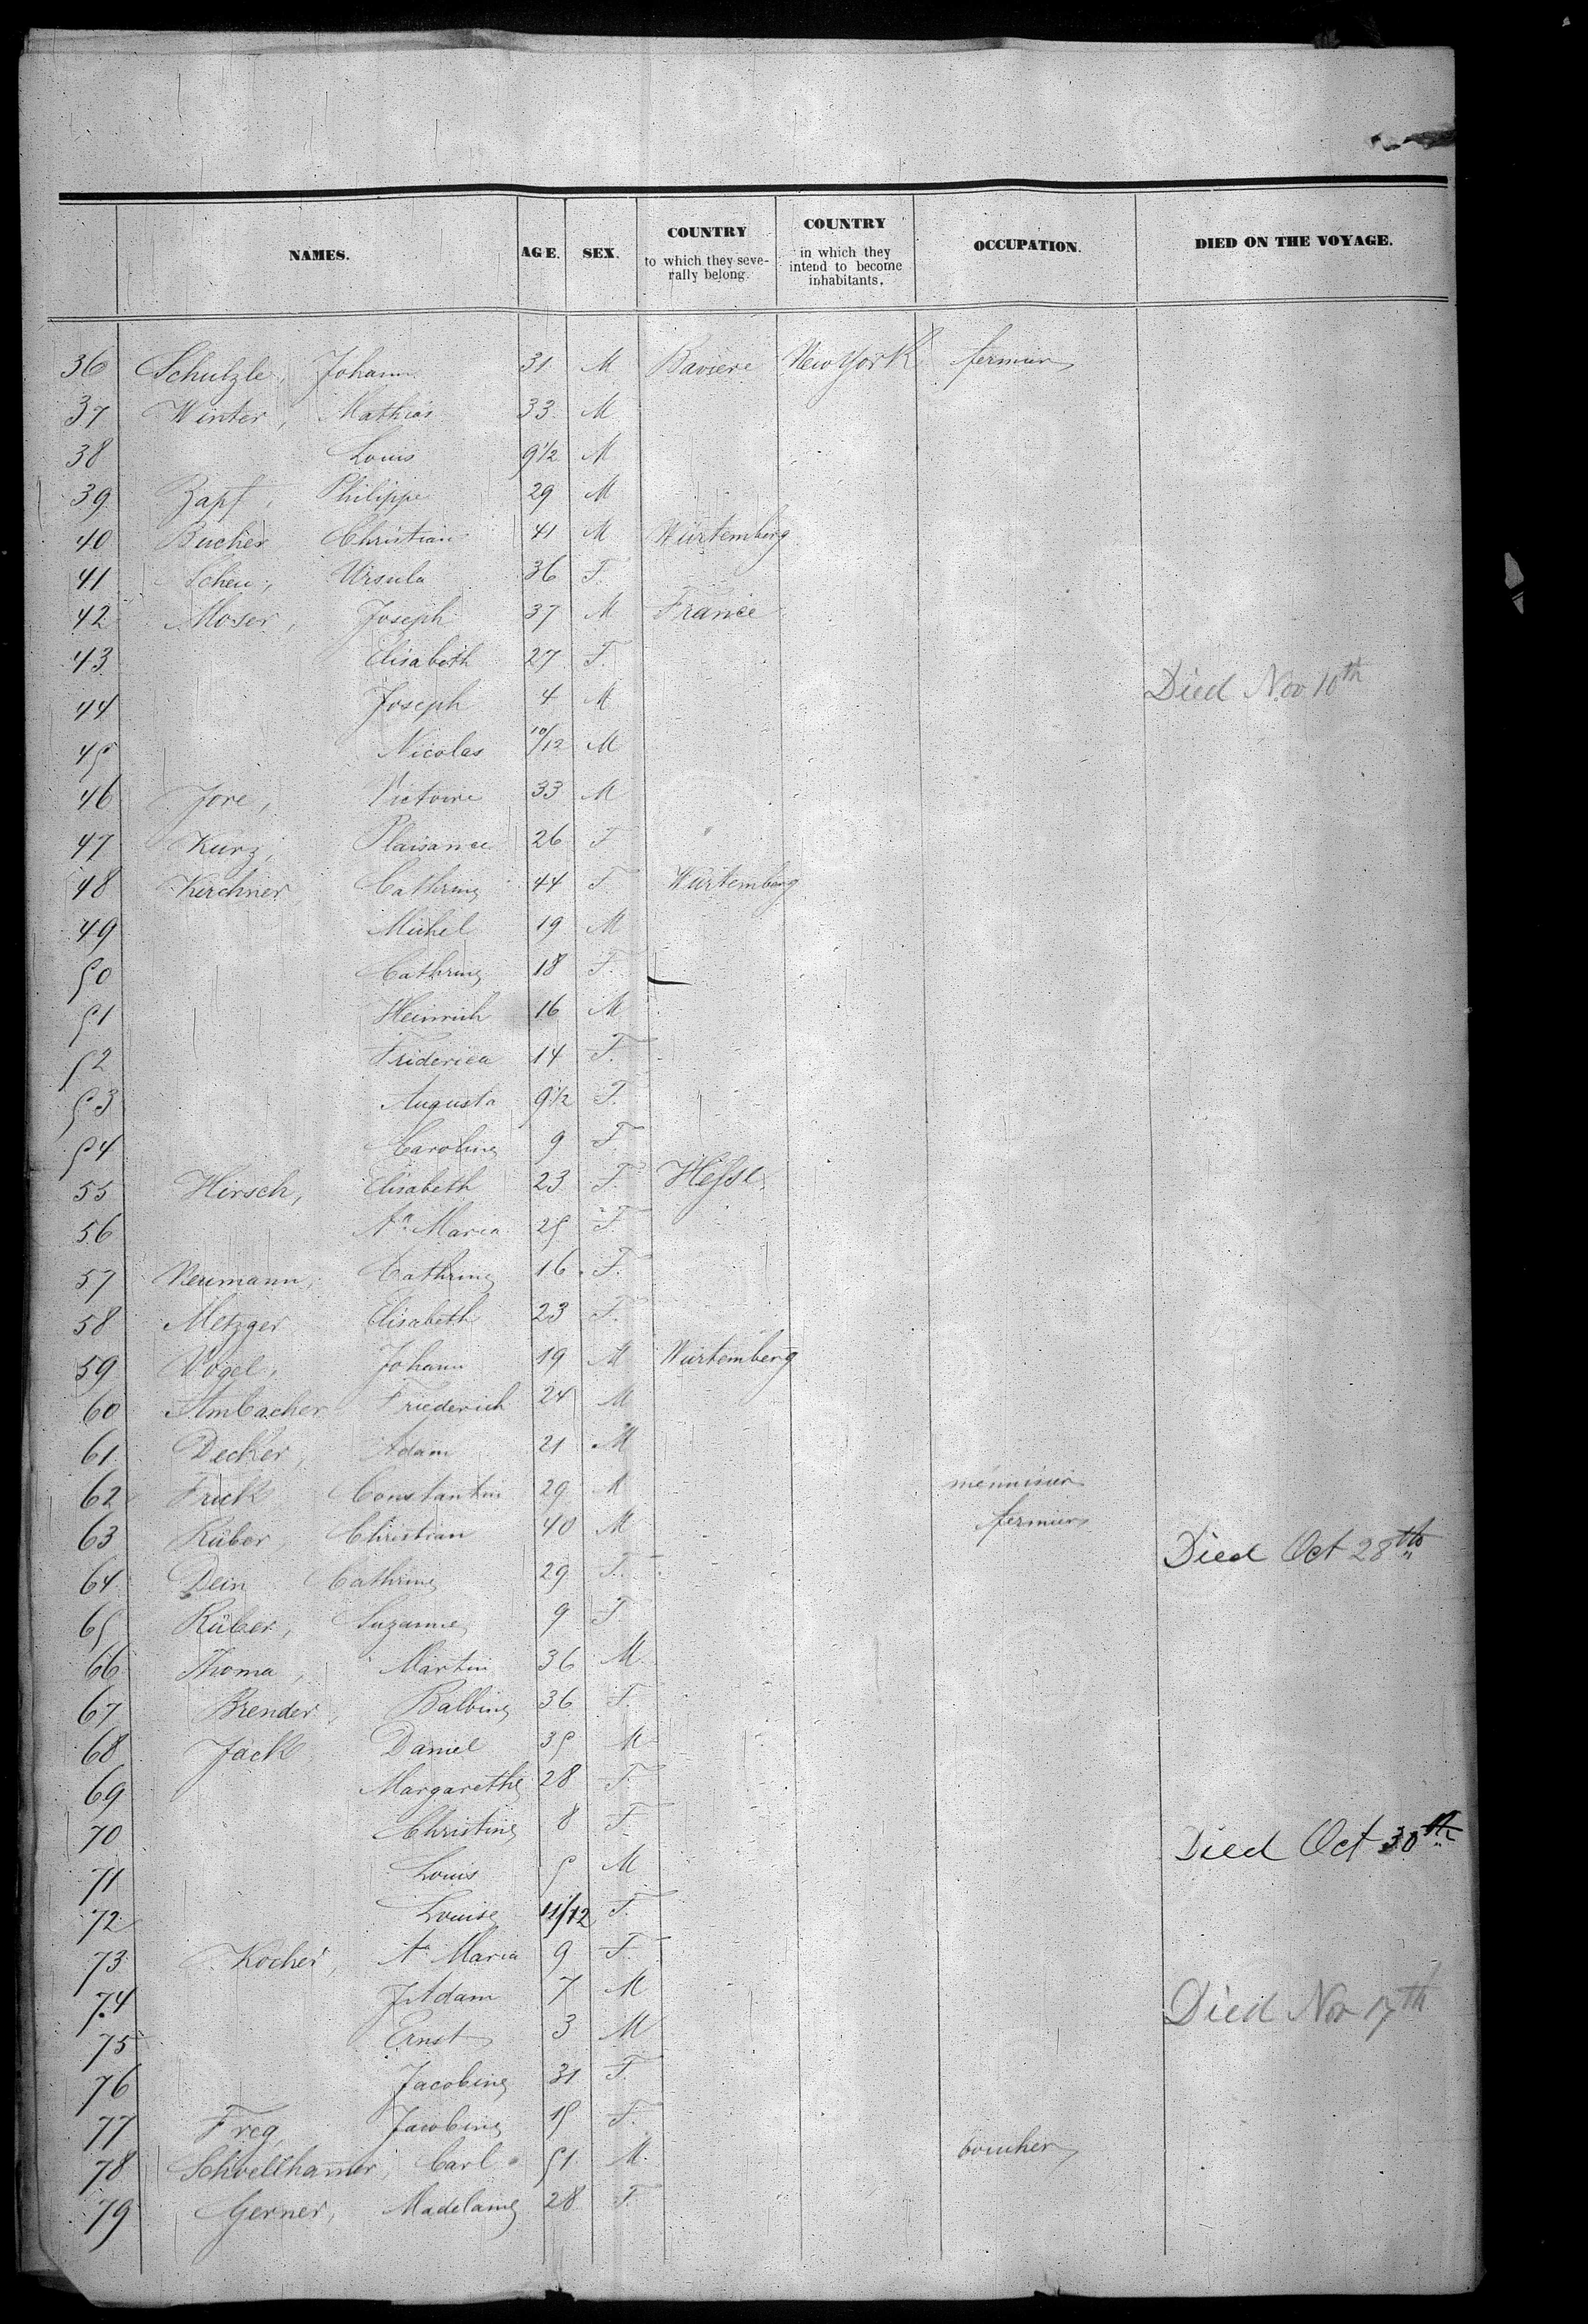 NAMES. AGE. SEX. COUNTRY to which they severally belong. COUNTRY in which they intend to become inhabitants. OCCUPATION. DIED ON THE VOYAGE.
36 Schulzle, Johann 31 M Baviere New York fermier
37 Winter, Mathias 33 M
38 Louis 9 1/2 M
39 Zapf, Philippe 29 M
40 Bucher Christian 41 M Würtemberg
41 Scheu, Ursula 36 F.
42 Moser, Joseph 37 M France
43 Elisabeth 27 F.
44 Joseph 4 M Died Nov 10th
45 Nicolas 10/12 M
46 Jore, Victoire 33 M
47 Kurz, Plaisance 26 F
48 Kirchner, Cathrine 44 F Würtemberg
49 Michel 19 M
50 Cathrine 18 F.
51 Heinrich 16 M
52 Friderica 14 F.
53 Augusta 9 1/2 F.
54 Caroline 9 F
55 Hirsch, Elisabeth 23 F. Hesse.
56 Aa Maria 25 F.
57 Neumann, Cathrine 16 F.
58 Metzger Elisabeth 23 F.
59 Vogel, Johann 19 M Würtemberg
60 Ambacher Friederich 24 M
61 Decker, Adam 21 M
62 Frick Constantin 29 M menuisier
63 Rüber, Christian 40 M fermier Died Oct 28th
64 Dein Cathrine 29 F.
65 Rüber, Suzanne 9 F.
66 Thoma, Martin 36 M.
67 Brender, Balbine 36 F.
68 Jack, Daniel 35 M
69 Margarethe 28 F.
70 Christine 8 F Died Oct 30th
71 Louis 5 M
72 Louise 11/12 F.
73 Kocher, Aa Maria 9 F.
74 J. Adam 7 M Died Nov 17th
75 Ernst 3 M
76 Jacobine 31 F.
77 Frey, Jacobine 15 F.
78 Schoellhamer, Carl 51 M. boucher
79 Gerner, Madelaine 28 F.